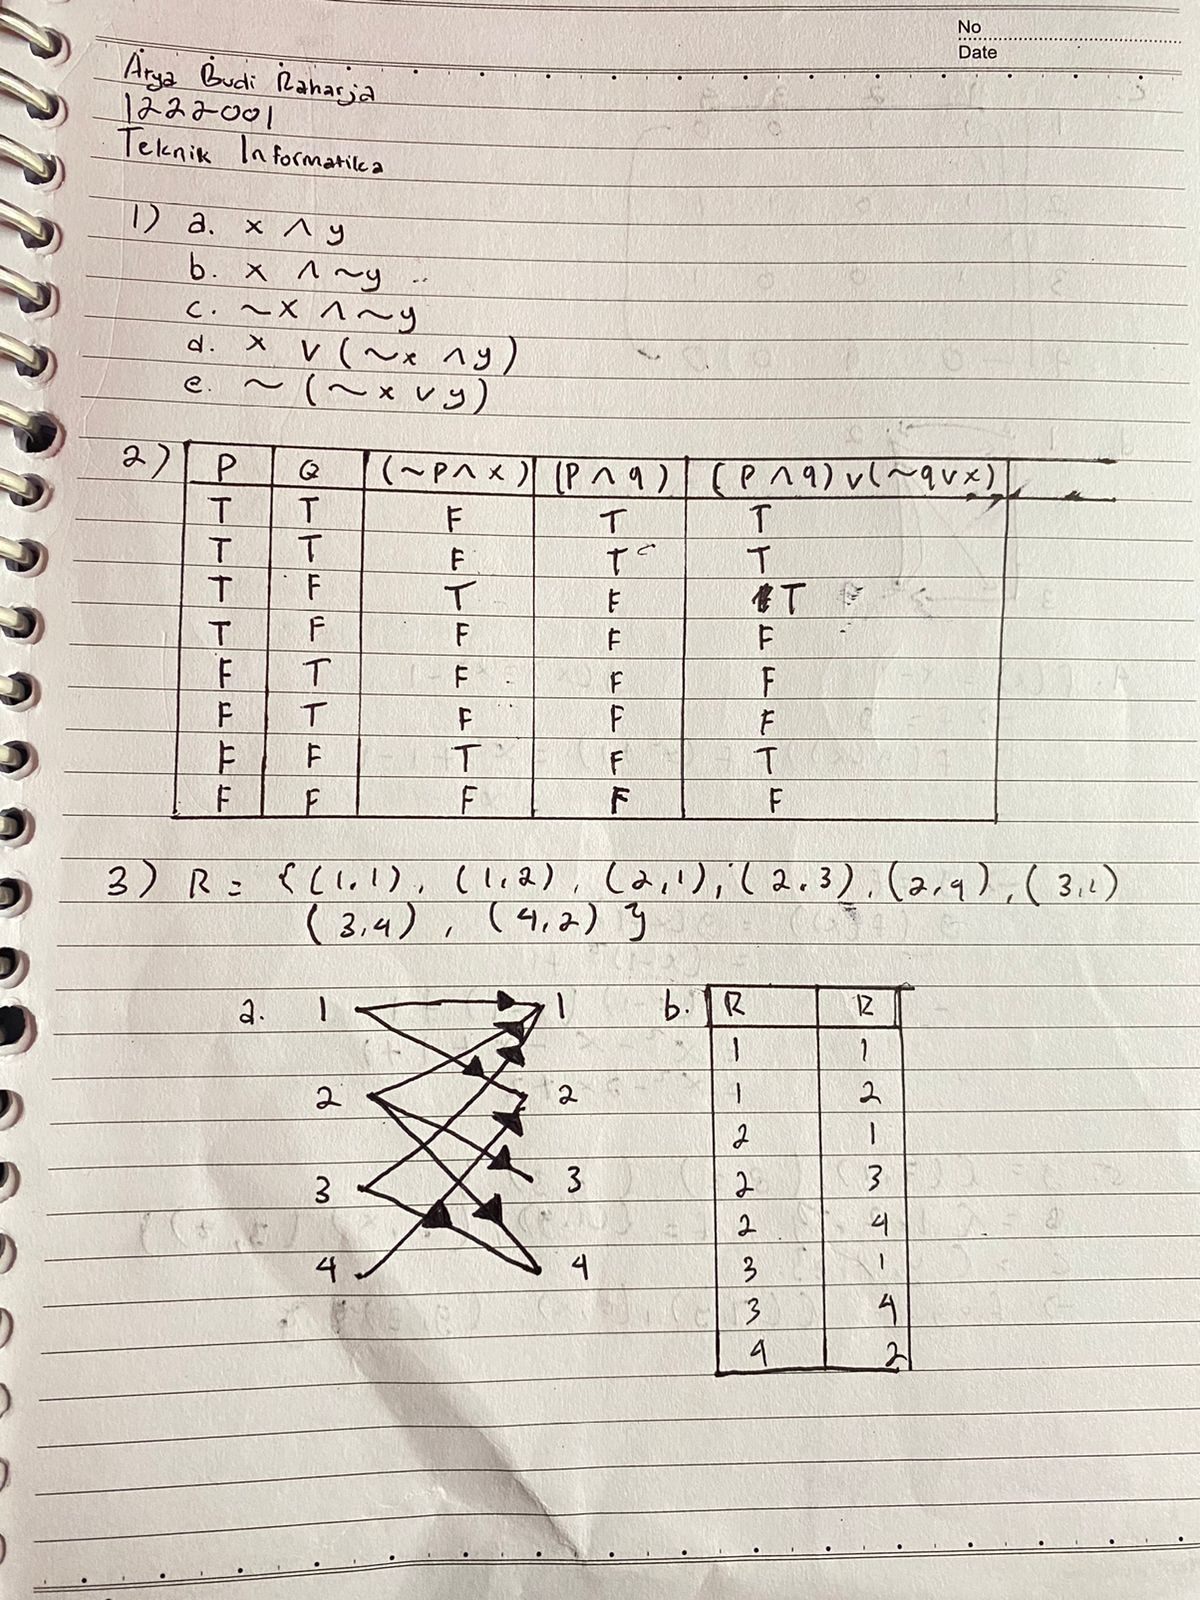 No
Date
Arya Budi Raharja
1222001
Teknik Informatika
1) a. x ∧ y
b. x ∧ ~y
c. ~x ∧ ~y
d. x ∨ (~x ∧ y)
e. ~ (~x ∨ y)
2) P Q (~P ∧ x) (P ∧ q) (P ∧ q) ∨ (~q ∨ x)
T T F T T
T T F T T
T F T F T
T F F F F
F T F F F
F T F F F
F F T F T
F F F F F
3) R = {(1,1), (1,2), (2,1), (2,3), (2,4), (3,1)
(3,4), (4,2)}
a. 1 1 b. R R
1 1
2 2 1 2
2 1
3 3 2 3
2 4
4 4 3 1
3 4
4 2